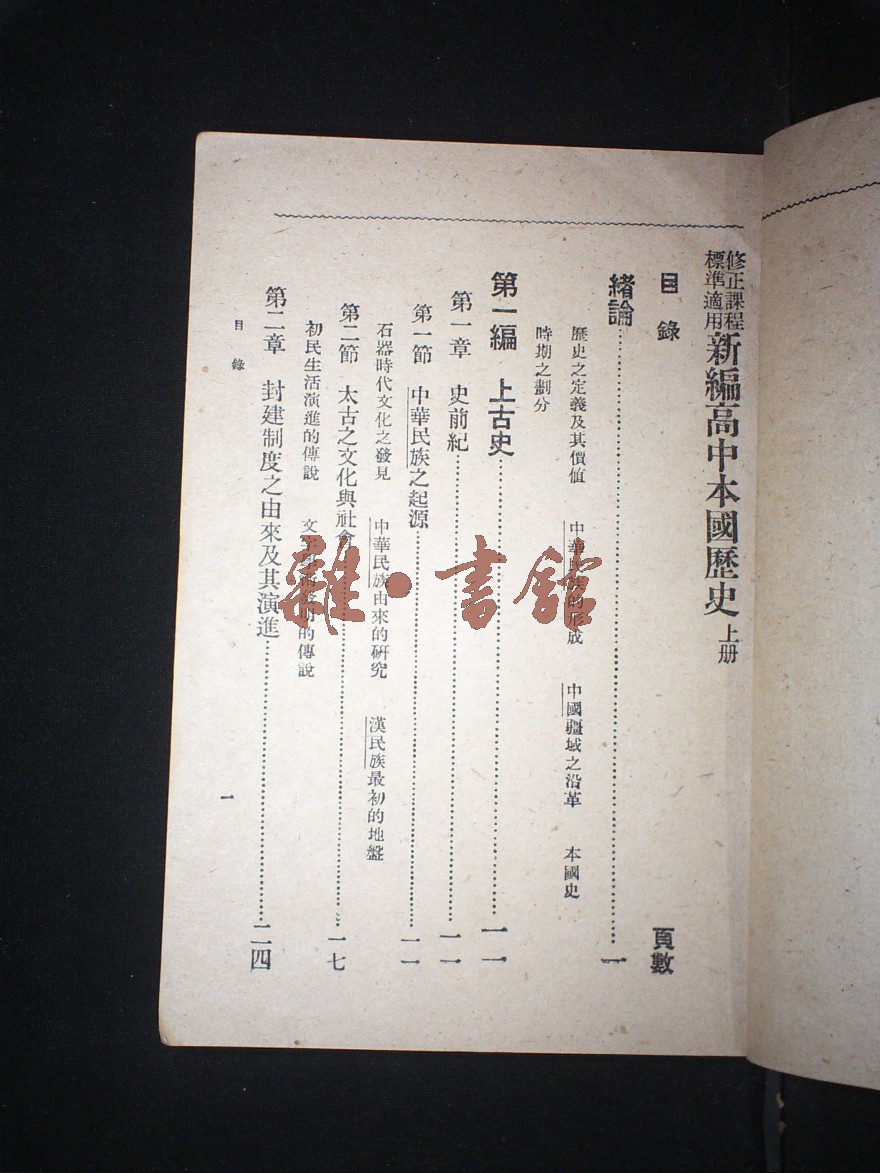 修正課程
標準適用
新編高中本國歷史 上册
目錄
頁數
緒論 一
歷史之定義及其價值 中華民族的形成 中國疆域之沿革 本國史
時期之劃分
第一編 上古史 一一
第一章 史前紀 一一
第一節 中華民族之起源 一一
石器時代文化之發見 中華民族由來的研究 漢民族最初的地盤
第二節 太古之文化與社會 一七
初民生活演進的傳說 文字 的傳說
第二章 封建制度之由來及其演進 二四
目錄
一
雜·書館